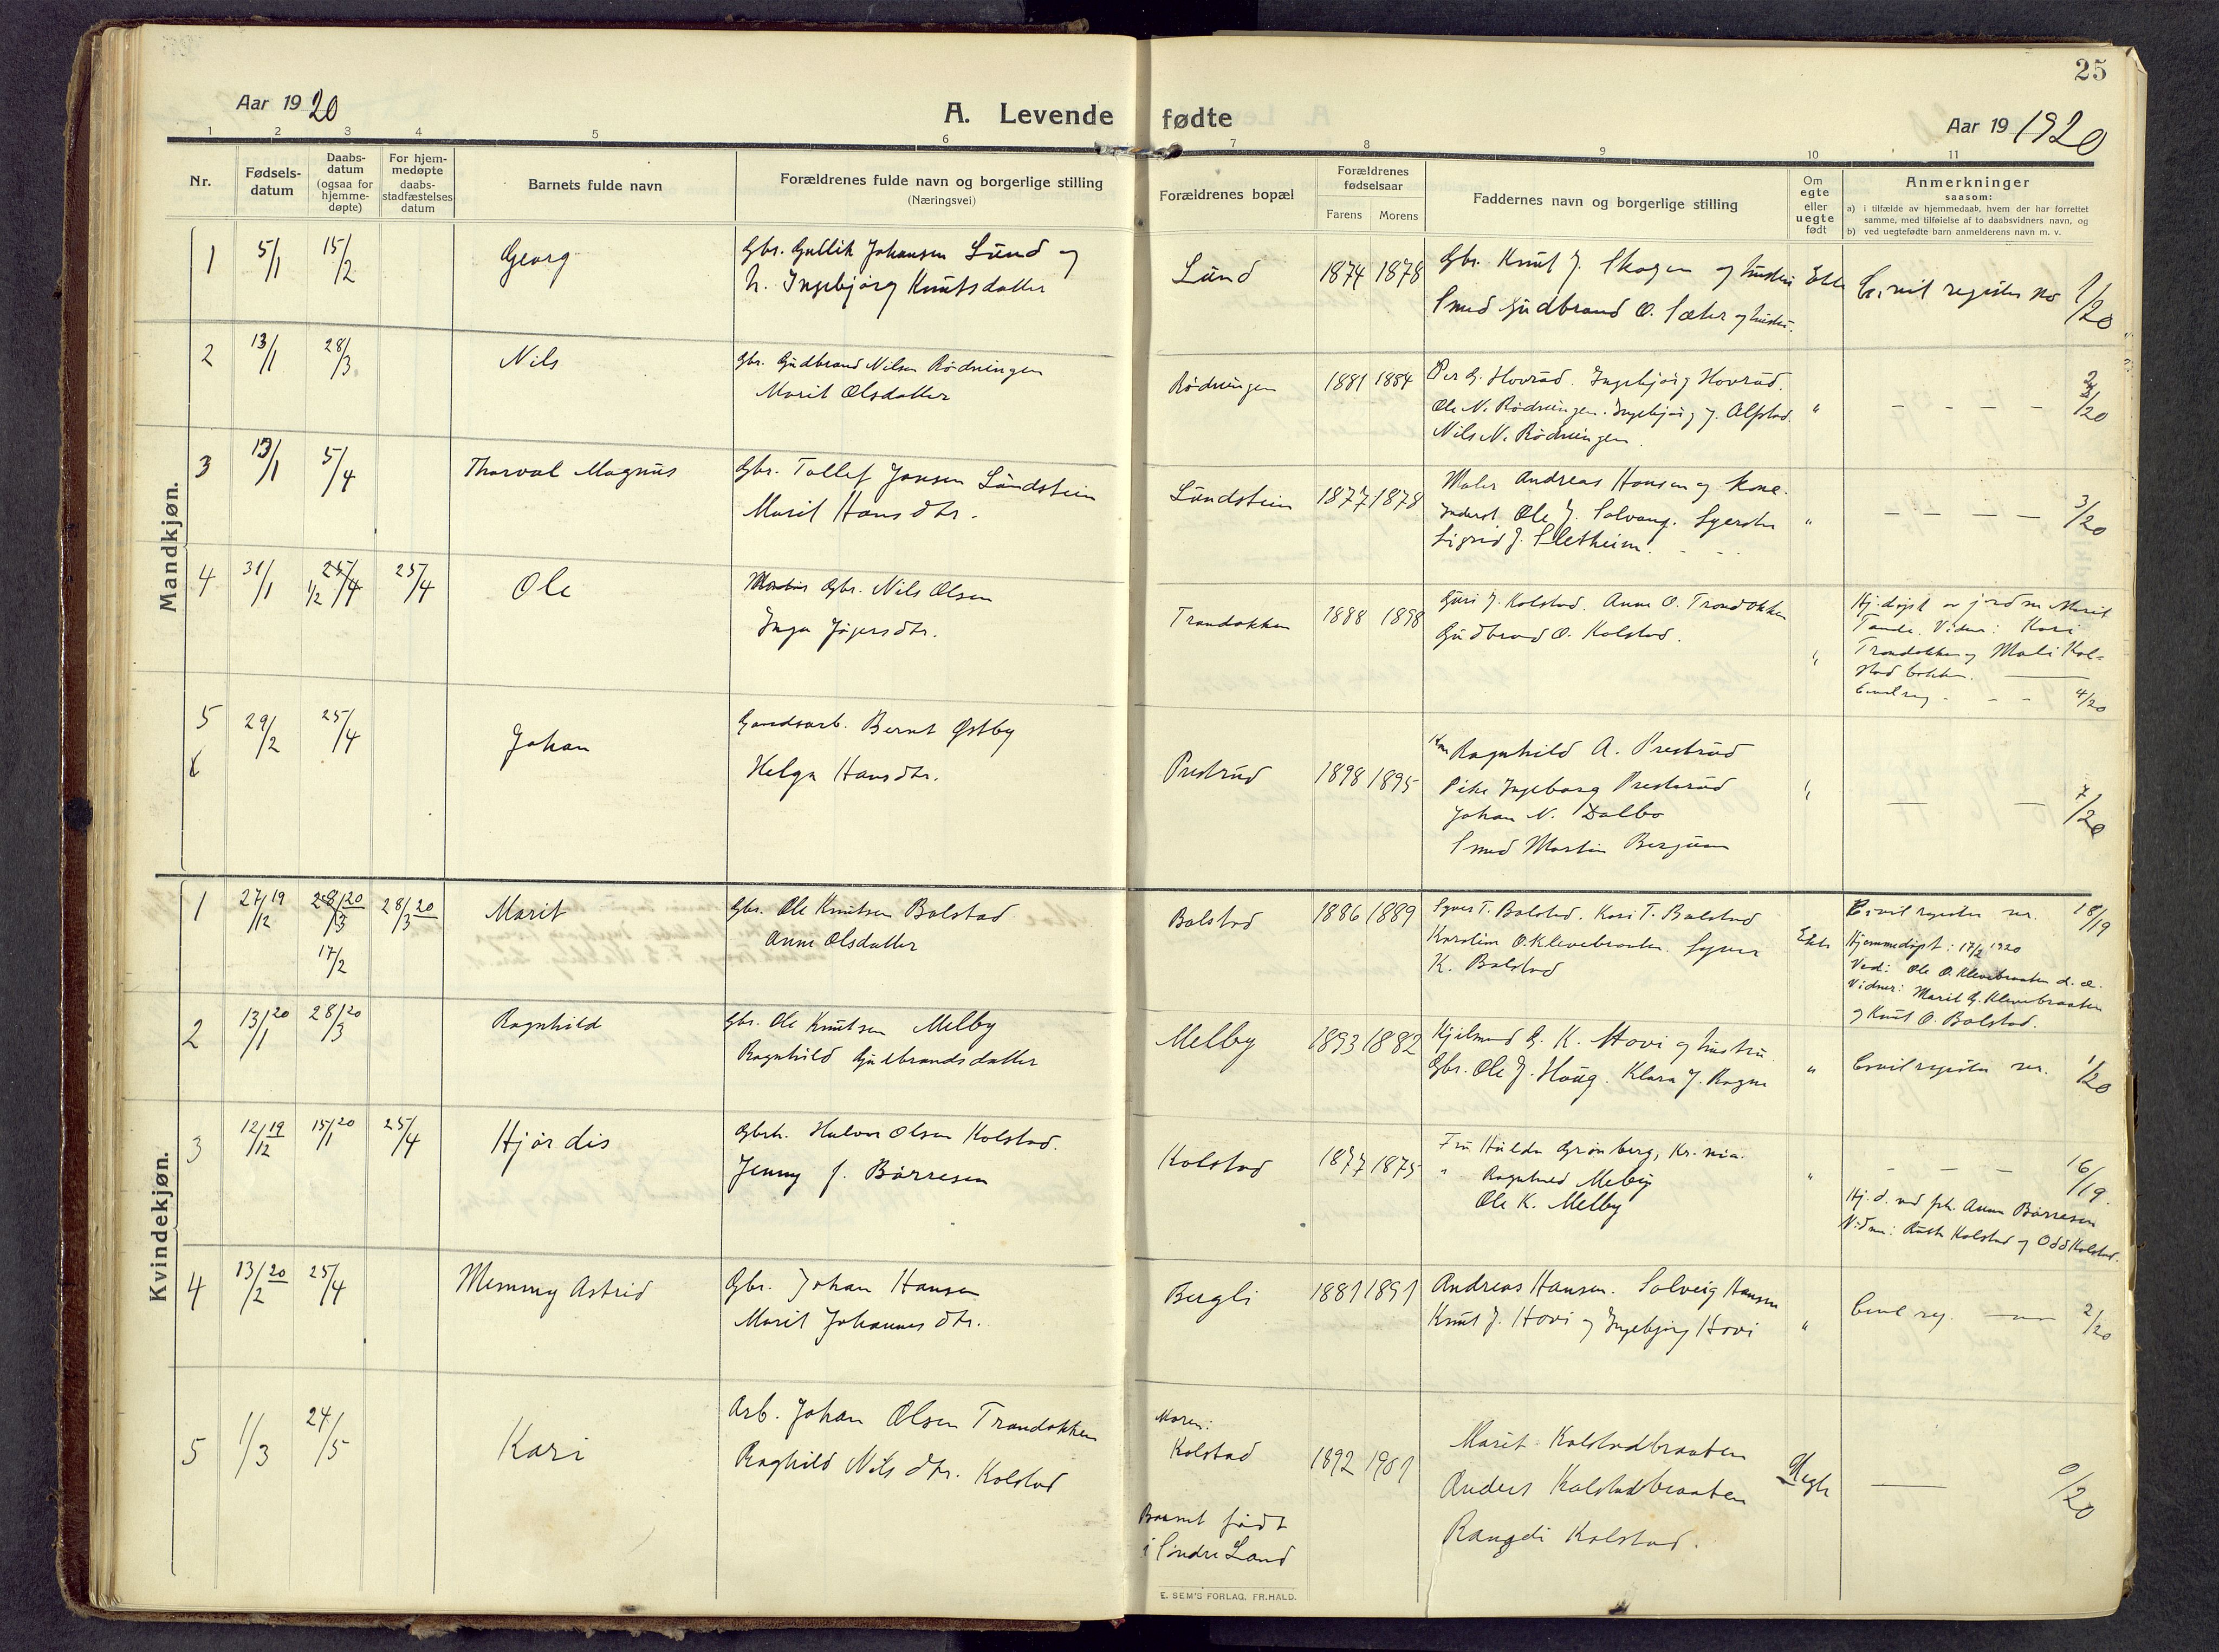 25
Aar 1920
A. Levende fødte
Aar 19 1920
1 2 3 4 5 6 7 8 9 10 11
Nr.
Fødsels-
datum
Daabs-
datum
(ogsaa for
hjemme-
døpte)
For hjem-
medøpte
daabs-
stadfæstelses
datum
Barnets fulde navn
Forældrenes fulde navn og borgerlige stilling
(Næringsvei)
Forældrenes bopæl
Forældrenes
fødselsaar
Farens Morens
Faddernes navn og borgerlige stilling
Om
egte
eller
uegte
født
Anmerkninger
saasom:
a) i tilfælde av hjemmedaab, hvem der har forrettet
samme, med tilføielse af to daabsvidners navn, og
b) ved uegtefødte barn anmelderens navn m. v.
Mandkjøn.
1 5/1 15/2 Georg
Gbr. Gullik Johansen Lund og
h. Ingebjørg Knutsdatter
Lund 1874 1878
Gbr. Knut J. Skogen og hustru
Smed Gudbrand O. Sæter og hustru.
Ekte
Civil register no 1/20
2 13/1 28/3 Nils
Gbr. Gudbrand Nilsen Rödningen
Marit Olsdatter
Rödningen 1881 1884
Per G. Hovrud. Ingebjörg Hovrud.
Ole N. Rödningen. Ingebjörg J. Alfstad.
Nils N. Rödningen.
" - - - - 2/20
3 13/1 5/4 Thorval Magnus
Gbr. Tollef Jansen Lundstein
Marit Hansdtr.
Lundstein 1877 1878
Maler Andreas Hansen og kone.
Ole J. Solvang.
Sigrid J. Sletheim. - -
" - - - - 3/20
4 31/1 1/2 25/4 25/4 Ole
Gbr. Nils Olsen
Inga
Trondokken 1888 1898
Guri J. Kolstad. Anne O. Trondokken
Gudbrand O. Kolstad.
"
Hj.döpt av jordm Marit
Tande. Vidner: Kari
Trondokken og Mali Kol-
stadbakken.
Civil reg - - - 4/20
5 29/2 25/4 Johan
Gaardsarb. Bernt Østby
Helga Hansdtr.
Prestrud 1898 1895
Ragnhild A. Prestrud
Pike Ingeborg Prestrud
Johan N. Dalbo
Smed Martin Berjum
" — — 7/20
Kvindekjøn.
1 27/12 19 28/3 20 17/2 28/3 20 Marit
Gbr. Ole Knutsen Bolstad
Anne Olsdatter
Bolstad 1886 1889
Syver T. Bolstad. Kari T. Bolstad
Karoline O. Klevebraaten. Syver
K. Bolstad
Ekte
Civil register nr. 18/19
Hjemmedöpt: 17/2 1920
Ved: Ole O. Klevebraaten d. æ.
Vidner: Marit G. Klevebraaten
og Knut O. Bolstad.
2 13/1 20 28/3 20 Ragnhild
Gbr. Ole Knutsen Melby
Ragnhild Gulbrandsdatter
Melby 1893 1882
G. K. Hovi og hustru
Gbr. Ole J. Haug. Klara J. Rogne
" Civil register nr. 1/20
3 12/12 19 15/1 20 25/4 Hjördis
Halvor Olsen Kolstad.
Jenny f. Börresen
Kolstad 1877 1875
Fru Hulda Grönberg, Kr.nia.
" Ragnhild Melby
Ole K. Melby
" - - - 16/19
Hj. d. ved frk. Anna Börresen
Vidner: Ruth Kolstad og Odd Kolstad.
4 13/2 20 25/4 Memmy Astrid
Gbr. Johan Hansen
Marit Johannesdtr.
Bergli 1881 1891
Andreas Hansen. Solveig Hansen
Knut J. Hovi og Ingebjörg Hovi
" Civil reg. — 2/20
5 1/3 24/5 Kari
Arb. Johan Olsen Trondokken
Raghild Nilsdtr. Kolstad
Moren:
Kolstad 1892 1901
Barnet födt
i Söndre Land
Marit Kolstadbraaten
Anders Kolstadbraaten
Rangdi Kolstad.
Uegte
— 0/20
E. SEM'S FORLAG, FR.HALD.